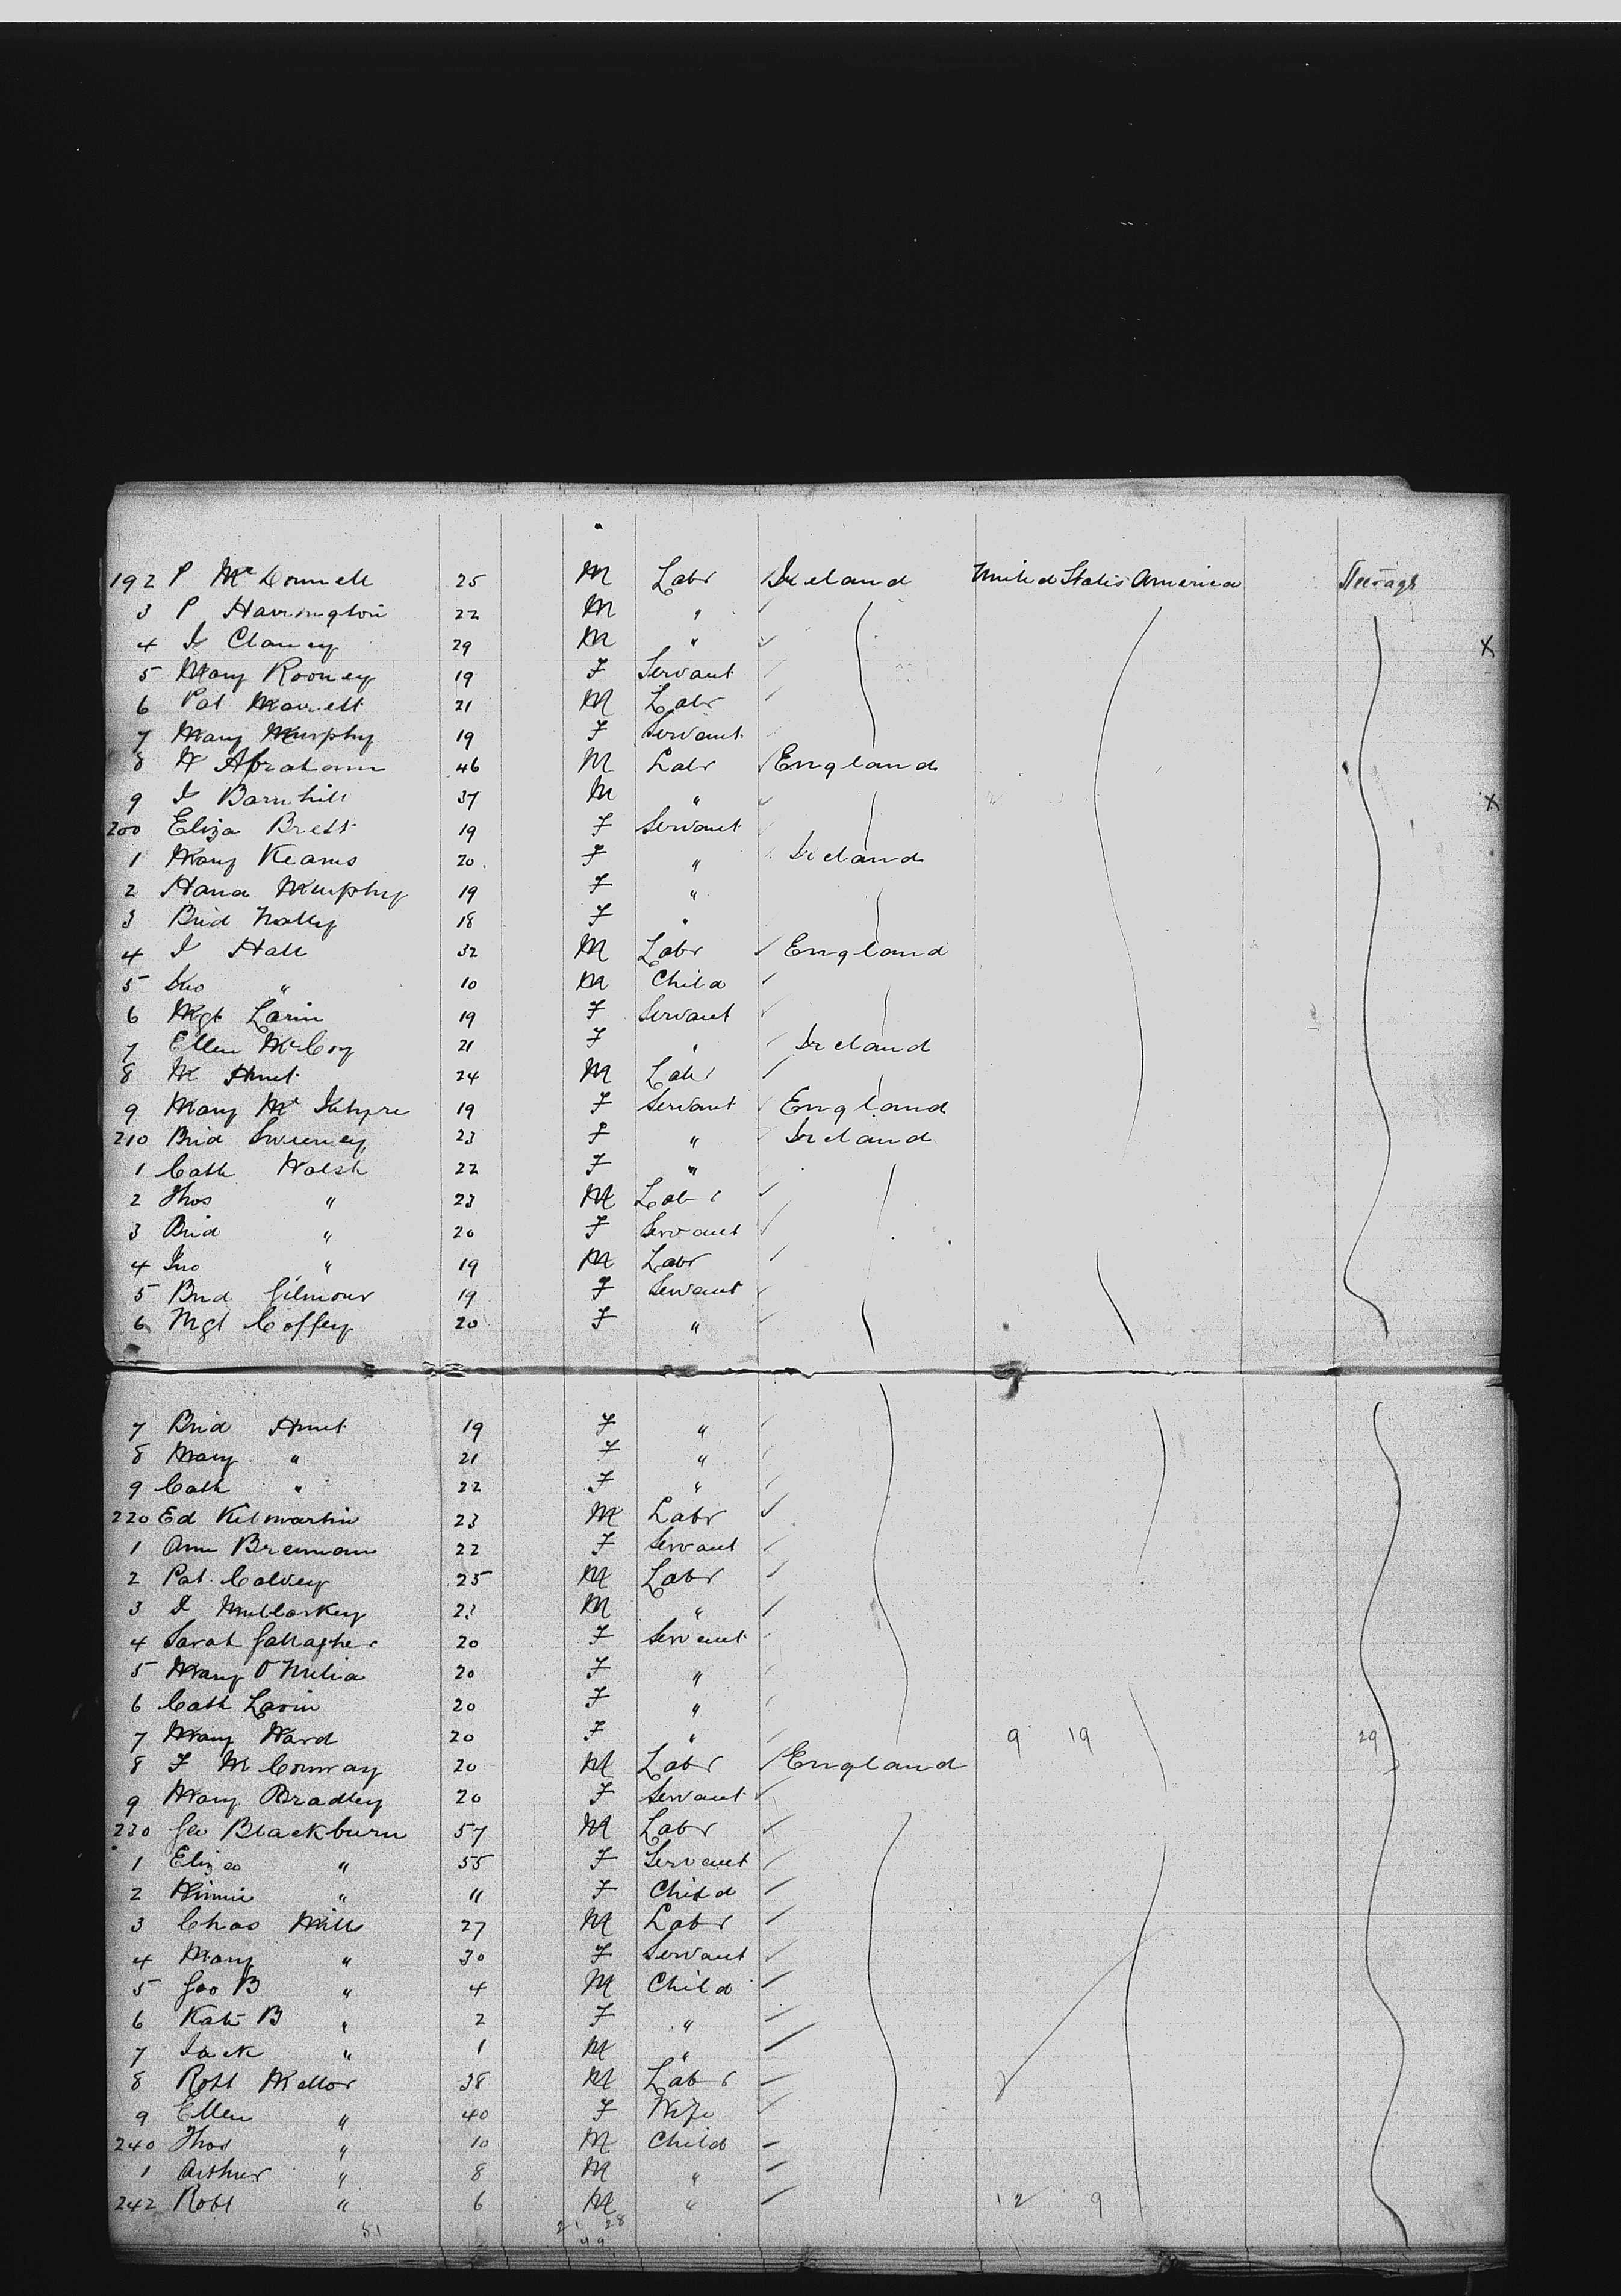 192 P McDonnell 25 M Labr Ireland United States America Steerage
3 P Harrington 22 M "
4 J Clancy 29 M " X
5 Mary Rooney 19 F Servant
6 Pat 21 M Labr
7 Mary Murphy 19 F Servant
8 W Abraham 46 M Labr England
9 J Barnhill 37 M " X
200 Eliza Brett 19 F Servant
1 Mary Kearns 20 F " Ireland
2 Hana Murphy 19 F "
3 Brid Nally 18 F "
4 J Hall 32 M Labr England
5 Jno " 10 M Child
6 Mgt Lavin 19 F Servant
7 Ellen McCoy 21 F " Ireland
8 M Hunt 24 M Labr
9 Mary McIntyre 19 F Servant England
210 Brid Sweeney 23 F " Ireland
1 Cath Walsh 22 F "
2 Thos " 23 M Labr
3 Brid " 20 F Servant
4 Jno " 19 M Labr
5 Brid Gilmour 19 F Servant
6 Mgt Coffey 20 F "
7 Brid Hunt 19 F "
8 Mary " 21 F "
9 Cath " 22 F "
220 Ed Kilmartin 23 M Labr
1 Ann Brennan 22 F Servant
2 Pat Calvey 25 M Labr
3 J Mullarkey 23 M "
4 Sarah Gallagher 20 F Servant
5 Mary O'Melia 20 F "
6 Cath Lavin 20 F "
7 Mary Ward 20 F " 9 19 29
8 F McConway 20 M Labr England
9 Mary Bradley 20 F Servant
230 Geo Blackburn 57 M Labr
1 Eliza " 55 F Servant
2 Minnie " 11 F Child
3 Chas Mills 27 M Labr
4 Mary " 30 F Servant
5 Geo B " 4 M Child
6 Kate B " 2 F "
7 Jack " 1 M "
8 Robt Mellor 38 M Labr
9 Ellen " 40 F Wife
240 Thos " 10 M Child
1 Arthur " 8 M "
242 Robt " 6 M " 12 9
51 21 28
49